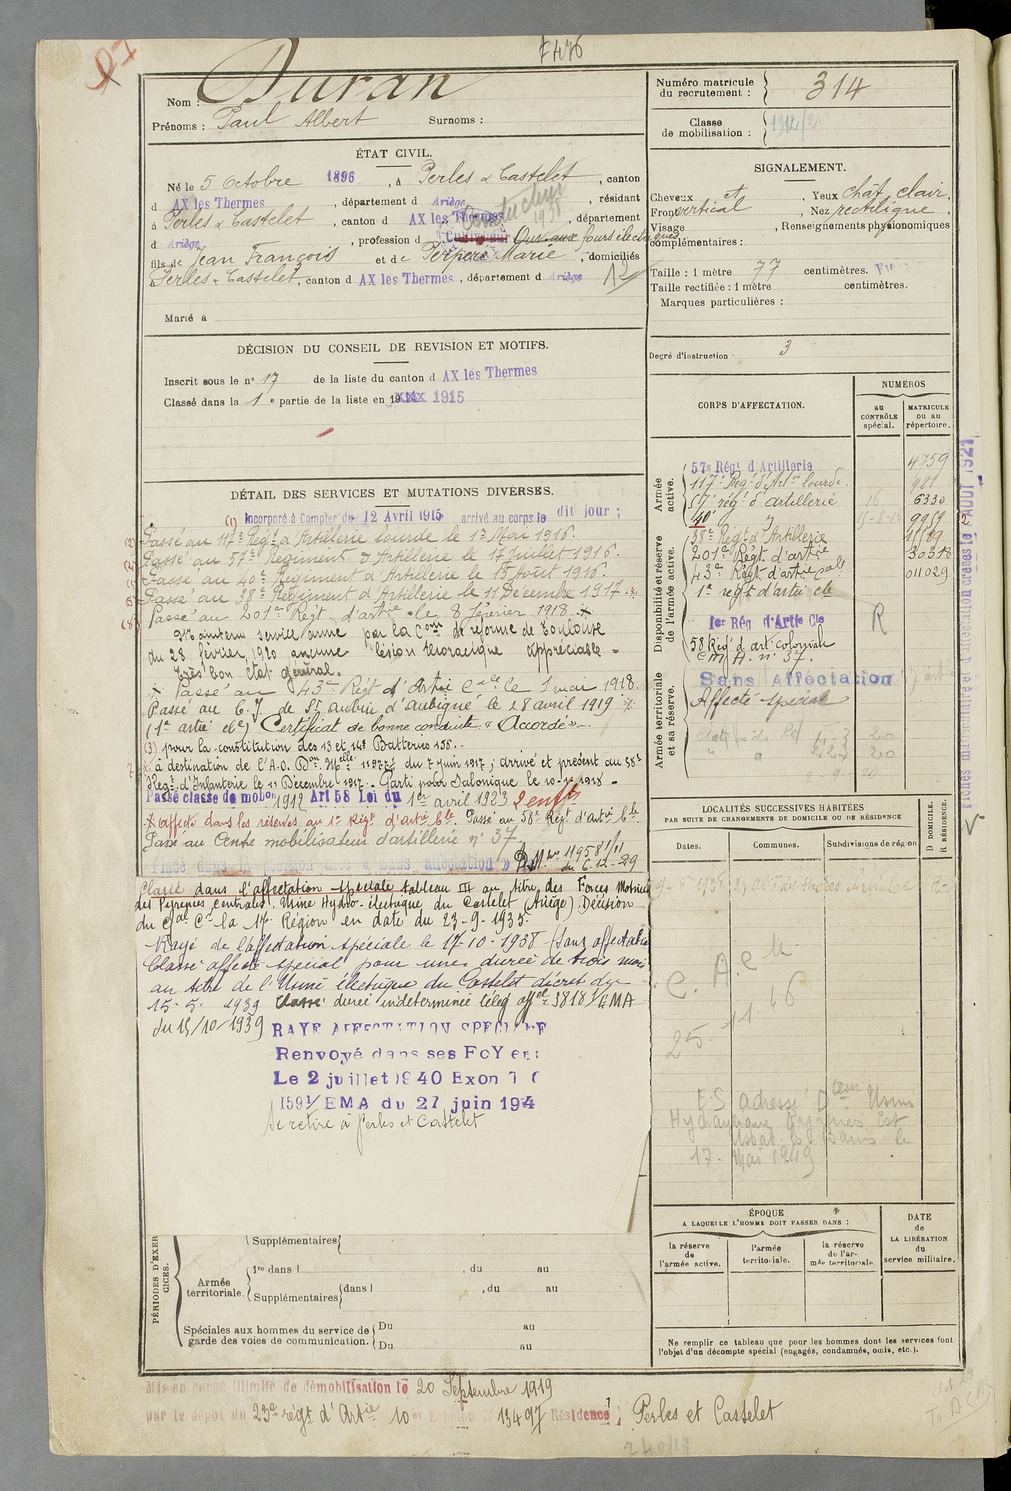 7476
Nom : Duran
Prénoms : Paul Albert Surnoms :
Numéro matricule du recrutement : 314
Classe de mobilisation : 1912/2
ÉTAT CIVIL.
Né le 5 Octobre 1896, à Perles & Castelet, canton
d AX les Thermes, département d Ariège, résidant
à Perles & Castelet, canton d AX les Thermes, département
d Ariège, profession d Cultivateur Ouv. aux fours électriques
Conducteur 1938
fils de Jean François et de Perpère Marie, domiciliés
à Perles & Castelet, canton d AX les Thermes, département d Ariège
12
Marié à
SIGNALEMENT.
Cheveux et Yeux chât. clair
Front vertical, Nez rectiligne,
Visage , Renseignements physionomiques
complémentaires :
Taille : 1 mètre 77 centimètres.
Taille rectifiée : 1 mètre centimètres.
Marques particulières :
Degré d'instruction 3
DÉCISION DU CONSEIL DE REVISION ET MOTIFS.
Inscrit sous le n° 17 de la liste du canton d AX les Thermes
Classé dans la 1e partie de la liste en 1915
DÉTAIL DES SERVICES ET MUTATIONS DIVERSES.
(1) Incorporé à Compter du 12 Avril 1915 arrivé au corps le dit jour ;
Passé au 117e Régt d'Artillerie lourde le 1er Mai 1916.
Passé au 57e Régiment d'Artillerie le 17 Juillet 1916.
Passé au 40e Régiment d'Artillerie le 15 Août 1916.
Passé au 38e Régiment d'Artillerie le 11 Décembre 1917.
Passé au 201e Régt d'artie le 8 février 1918.
Maintenu service armé par la Com de réforme de Toulouse
du 28 février 1920 aucune lésion thoracique appréciable
très bon état général.
Passé au 43e Régt d'Artie Cale le 1 mai 1918
Passé au C.I. de St Aubin d'Aubigné le 28 avril 1919
(1e artie cle) Certificat de bonne conduite « Accordé »
(3) pour la constitution des 13 et 14e Batteries 155.
à destination de l'A.O. Don Mlle 11977 du 7 juin 1917 ; arrivé et présent au 38e
Regt d'Infanterie le 11 Décembre 1917. Parti pour Salonique le
Passé classe de mobon 1912 Art 58 Loi du 1er avril 1923 2 enfts
Affecté dans les réserves au 1er Régt d'artie Cle. Passé au 58e Régt d'Art Cle.
Passé au Centre mobilisateur d'artillerie n° 37
Placé dans la position dite « Sans affectation » D.M. no 11958 1/11 du 6-12-29
Classé dans l'affectation spéciale tableau III au titre des Forces Motrices
des Pyrénées centrales. Usine Hydro-électrique du Castelet (Ariège) Décision
du Gal Ct la 17e Région en date du 23-9-1935.
Rayé de l'affectation spéciale le 17-10-1938 (sans affectation
Classé affecté spécial pour une durée de trois mois
au titre de l'Usine électrique du Castelet décret du
15-5-1939 Classé durée indéterminée télég offel 3818 1/EMA
du 15/10/1939
RAYE AFFECTATION SPECIALE
Renvoyé dans ses FOYers
Le 2 juillet 1940 Exon
1591/EMA du 27 juin 194
Se retire à Perles et Castelet
CORPS D'AFFECTATION.
NUMÉROS
au CONTRÔLE spécial.
MATRICULE ou au répertoire.
Armée active.
57e Régt d'Artillerie 4759
117e Régt d'Artie lourde. 981
57e rég. d'artillerie 16 6330
40e 15-8-16 9959
Disponibilité et réserve de l'armée active.
38e Régt d'Artillerie
201e Régt. d'artie 30318
43e Régt d'artie cale 011029
1e régt d'artie cle
1er Rég d'Artie Cle R
58 Rég d'art coloniale
C M A. n° 37.
Armée territoriale et sa réserve.
Sans Affectation
Affecté spécial
Fiches matriculaire et d'affectation créées le AOUT 1921
LOCALITÉS SUCCESSIVES HABITÉES
PAR SUITE DE CHANGEMENTS DE DOMICILE OU DE RÉSIDENCE
Dates.
Communes.
Subdivisions de région
D DOMICILE.
R RÉSIDENCE.
E.S adressé Dteur Usine
Hydraulique Pyrénées Est
Ussat les Bains le
17. Mai 1949
PÉRIODES D'EXERCICES.
Supplémentaires
Armée territoriale. 1re dans l , du au
Supplémentaires dans l , du au
Spéciales aux hommes du service de garde des voies de communication. Du au
Du au
ÉPOQUE
A LAQUELLE L'HOMME DOIT PASSER DANS :
la réserve de l'armée active.
l'armée territoriale.
la réserve de l'armée territoriale.
DATE de LA LIBÉRATION du service militaire.
Ne remplir ce tableau que pour les hommes dont les services font
l'objet d'un décompte spécial (engagés, condamnés, omis, etc.).
Mis en congé illimité de démobilisation le 20 Septembre 1919
par le dépôt du 23e régt d'Artie 10e Echelon N° 13497 Résidence Perles et Castelet